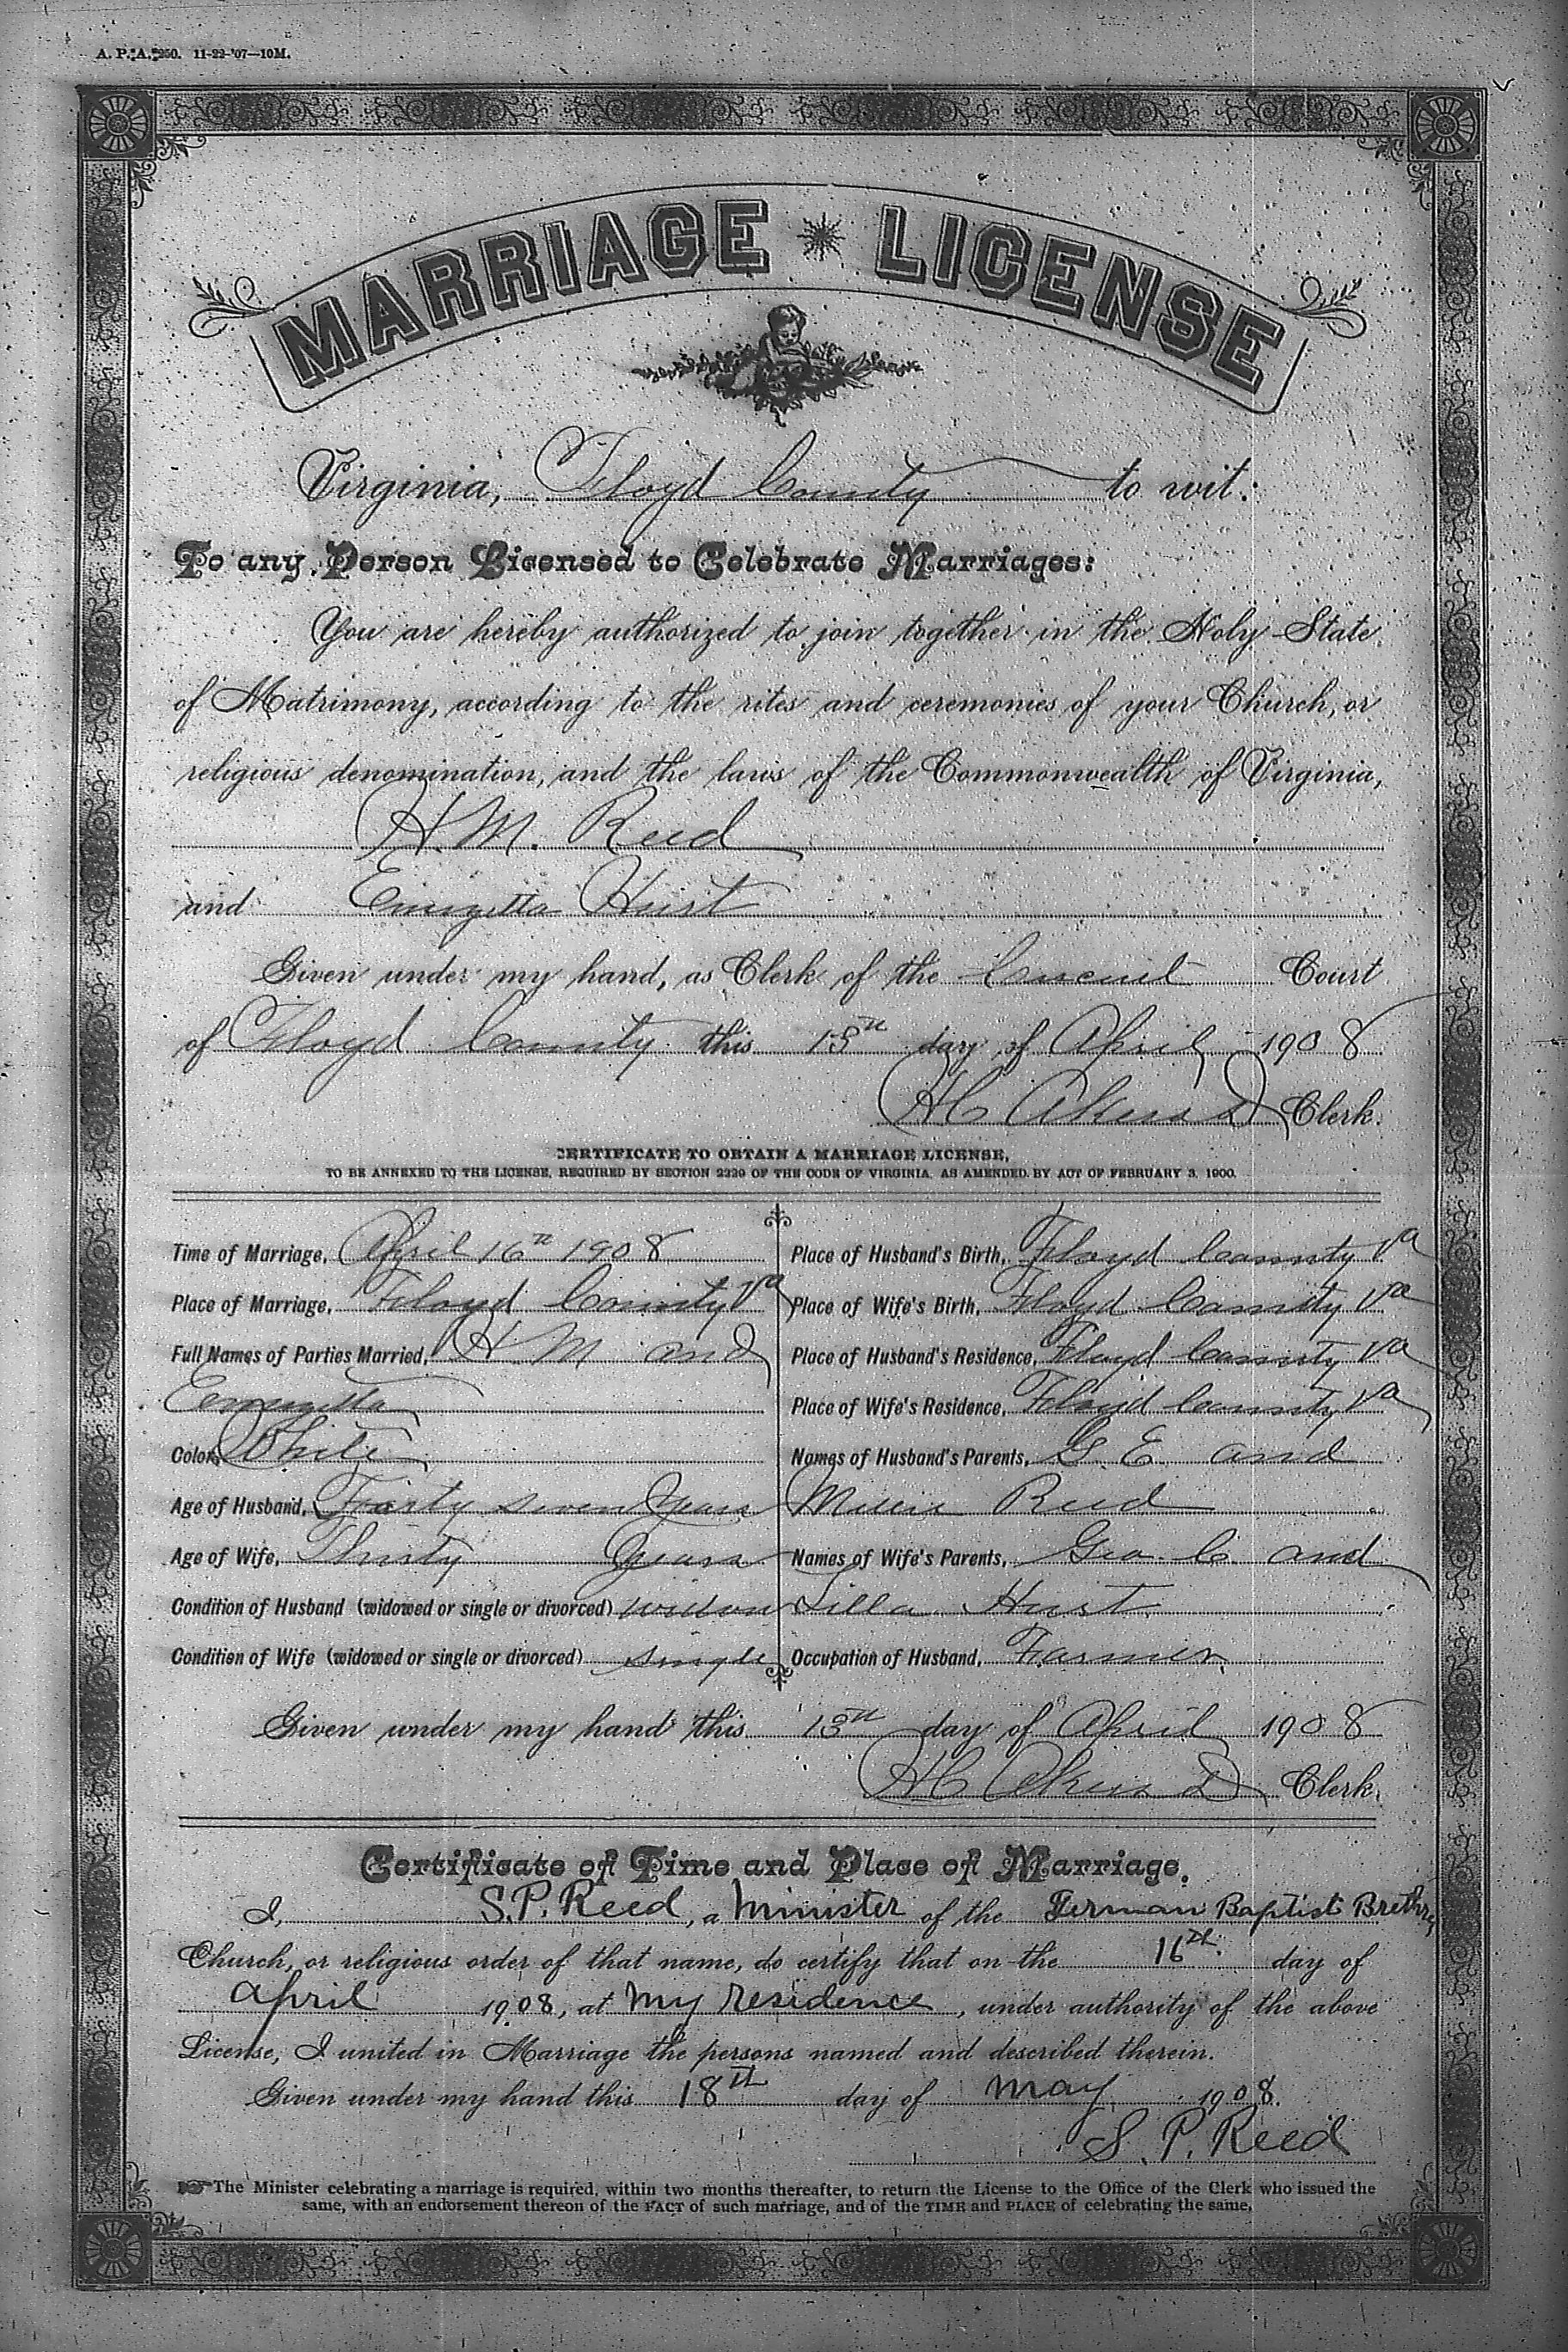 A. P. A. 250. 11-22-'07—10M.
MARRIAGE LICENSE
Virginia, Floyd County to wit:
To any Person Licensed to Celebrate Marriages:
You are hereby authorized to join together in the Holy State
of Matrimony, according to the rites and ceremonies of your Church, or
religious denomination, and the laws of the Commonwealth of Virginia,
H. M. Reed
and Emazetta Hurst
Given under my hand, as Clerk of the Circuit Court
of Floyd County this 15th day of April 1908
Clerk.
CERTIFICATE TO OBTAIN A MARRIAGE LICENSE,
TO BE ANNEXED TO THE LICENSE, REQUIRED BY SECTION 2229 OF THE CODE OF VIRGINIA, AS AMENDED BY ACT OF FEBRUARY 3, 1900.
Time of Marriage, April 16th 1908
Place of Marriage, Floyd County Va
Full Names of Parties Married, H. M and
Emazetta
Color, White
Age of Husband, Forty seven Years
Age of Wife, Thirty Years
Condition of Husband (widowed or single or divorced) widow
Condition of Wife (widowed or single or divorced) single
Place of Husband's Birth, Floyd County Va
Place of Wife's Birth, Floyd County Va
Place of Husband's Residence, Floyd County Va
Place of Wife's Residence, Floyd County Va
Names of Husband's Parents, G. E. and
Reed
Names of Wife's Parents, Geo. C. and
Lilla Hurst
Occupation of Husband, Farmer
Given under my hand this 15th day of April 1908
Clerk.
Certificate of Time and Place of Marriage.
I, S.P. Reed, a Minister of the German Baptist Brethren
Church, or religious order of that name, do certify that on the 16th day of
April 1908, at my residence, under authority of the above
License, I united in Marriage the persons named and described therein.
Given under my hand this 18th day of May 1908.
S. P. Reed
The Minister celebrating a marriage is required, within two months thereafter, to return the License to the Office of the Clerk who issued the
same, with an endorsement thereon of the FACT of such marriage, and of the TIME and PLACE of celebrating the same.